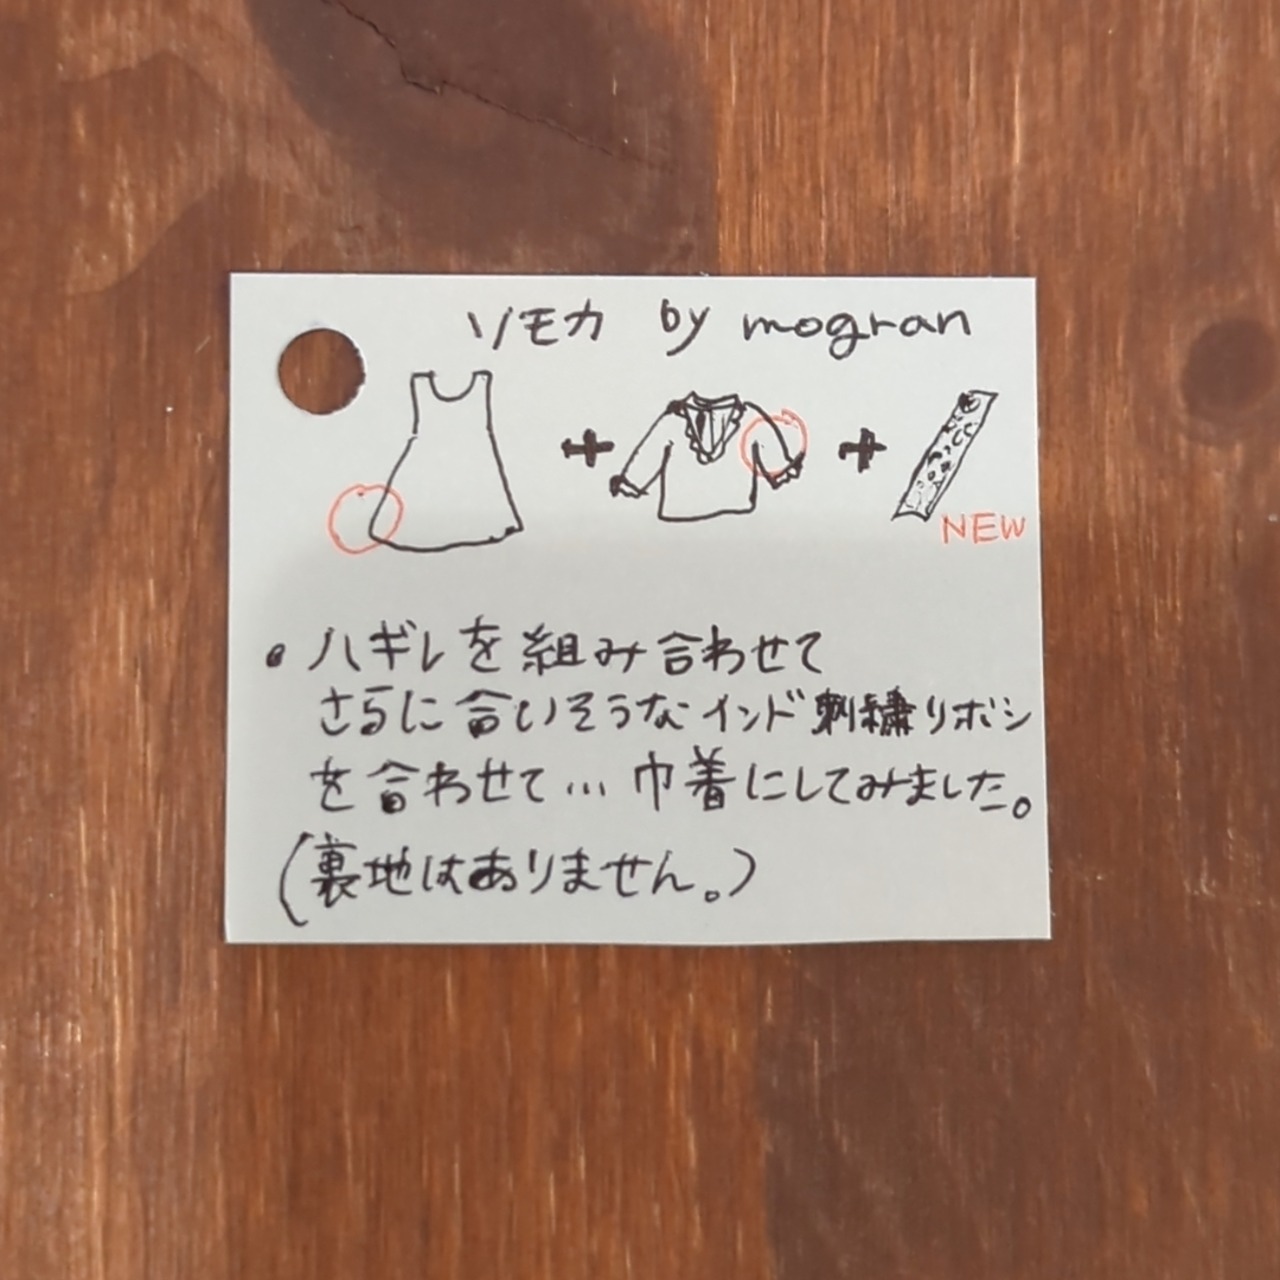 ソモカ by mogran
+ +
NEW
• ハギレを組み合わせて
さらに合いそうなインド刺繍リボン
を合わせて...巾着にしてみました。
(裏地はありません。)